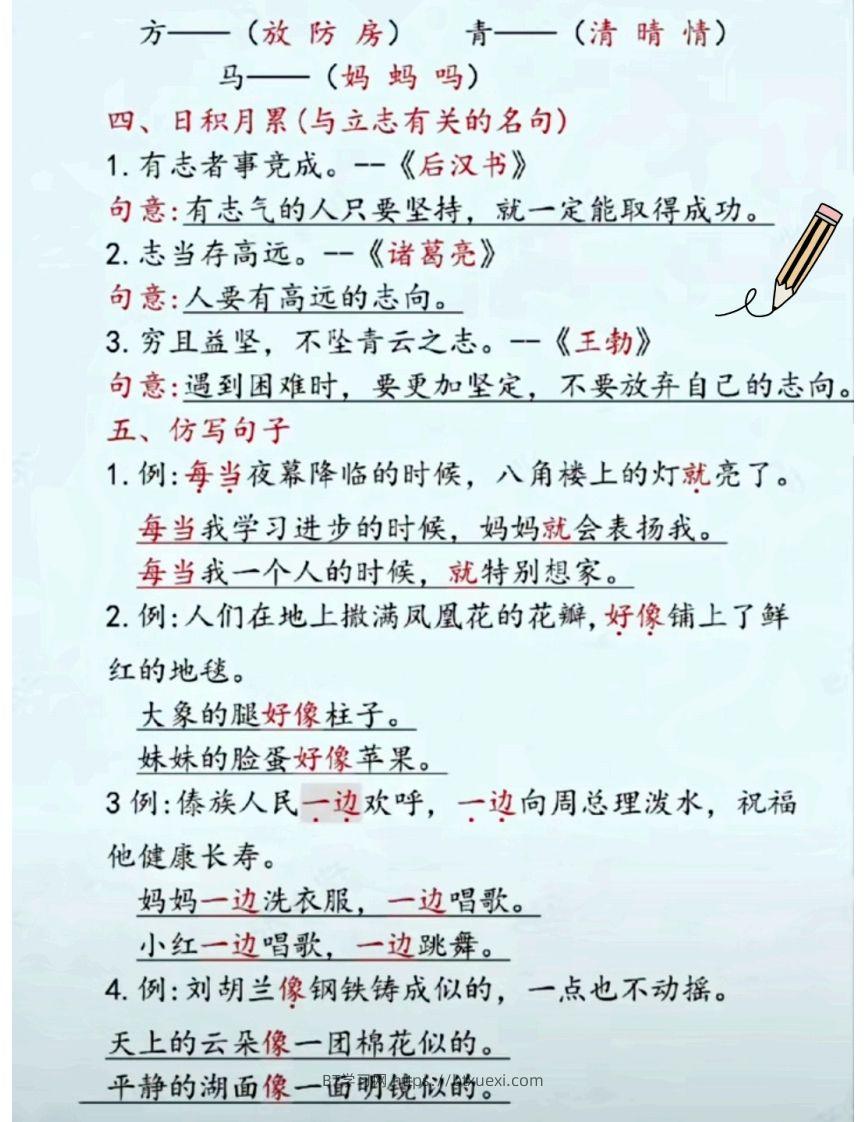 方——（放 防 房） 青——（清 晴 情）
马——（妈 蚂 吗）
四、日积月累(与立志有关的名句)
1.有志者事竞成。--《后汉书》
句意:有志气的人只要坚持，就一定能取得成功。
2.志当存高远。--《诸葛亮》
句意:人要有高远的志向。
3.穷且益坚，不坠青云之志。--《王勃》
句意:遇到困难时，要更加坚定，不要放弃自己的志向。
五、仿写句子
1.例:每当夜幕降临的时候，八角楼上的灯就亮了。
每当我学习进步的时候，妈妈就会表扬我。
每当我一个人的时候，就特别想家。
2.例:人们在地上撒满凤凰花的花瓣,好像铺上了鲜
红的地毯。
大象的腿好像柱子。
妹妹的脸蛋好像苹果。
3例:傣族人民一边欢呼，一边向周总理泼水，祝福
他健康长寿。
妈妈一边洗衣服，一边唱歌。
小红一边唱歌，一边跳舞。
4.例:刘胡兰像钢铁铸成似的，一点也不动摇。
天上的云朵像一团棉花似的。
平静的湖面像一面明镜似的。
BT学习网 https://btxuexi.com